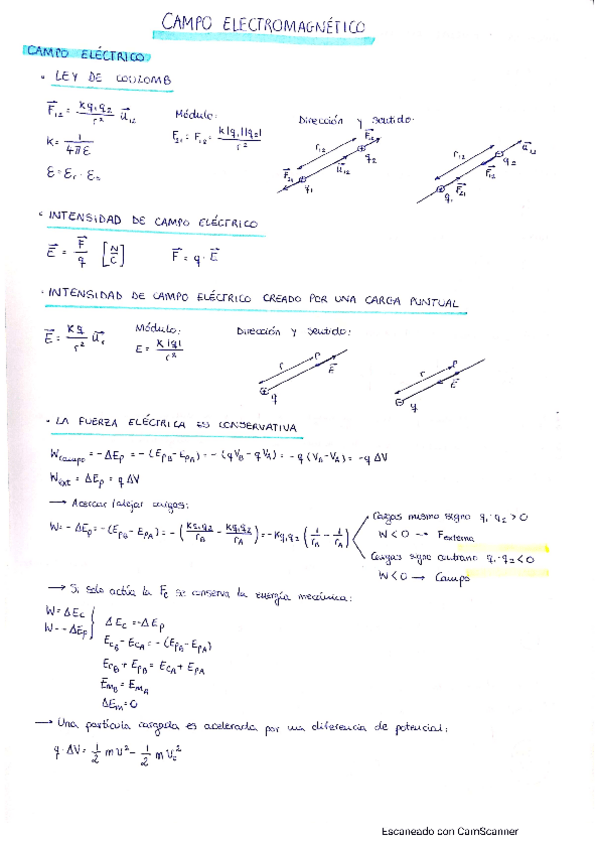 CAMPO ELECTROMAGNÉTICO
CAMPO ELÉCTRICO
· LEY DE COULOMB
F₁₂ = K q₁ q₂ / r² u₁₂
Módulo:
F₂₁ = F₁₂ = K |q₁| |q₂| / r²
Dirección y sentido:
K = 1 / 4πε
ε = εr · ε₀
· INTENSIDAD DE CAMPO ELÉCTRICO
E = F / q [N/C] F = q · E
· INTENSIDAD DE CAMPO ELÉCTRICO CREADO POR UNA CARGA PUNTUAL
E = K q / r² ur
Módulo:
E = K |q| / r²
Dirección y sentido:
· LA FUERZA ELÉCTRICA ES CONSERVATIVA
Wcampo = -ΔEp = -(EpB - EpA) = -(qVB - qVA) = -q(VB - VA) = -q ΔV
Wext = ΔEp = q ΔV
→ Acercar / alejar cargas:
Cargas mismo signo q₁·q₂ > 0
W < 0 → Fexterna
Cargas signo contrario q₁·q₂ < 0
W < 0 → Campo
→ Si solo actúa la Fe se conserva la energía mecánica:
W = ΔEc
W = -ΔEp
ΔEc = -ΔEp
EcB - EcA = -(EpB - EpA)
EcB + EpB = EcA + EpA
EmB = EmA
ΔEm = 0
→ Una partícula cargada es acelerada por una diferencia de potencial:
q · ΔV = 1/2 m v² - 1/2 m v₀²
Escaneado con CamScanner